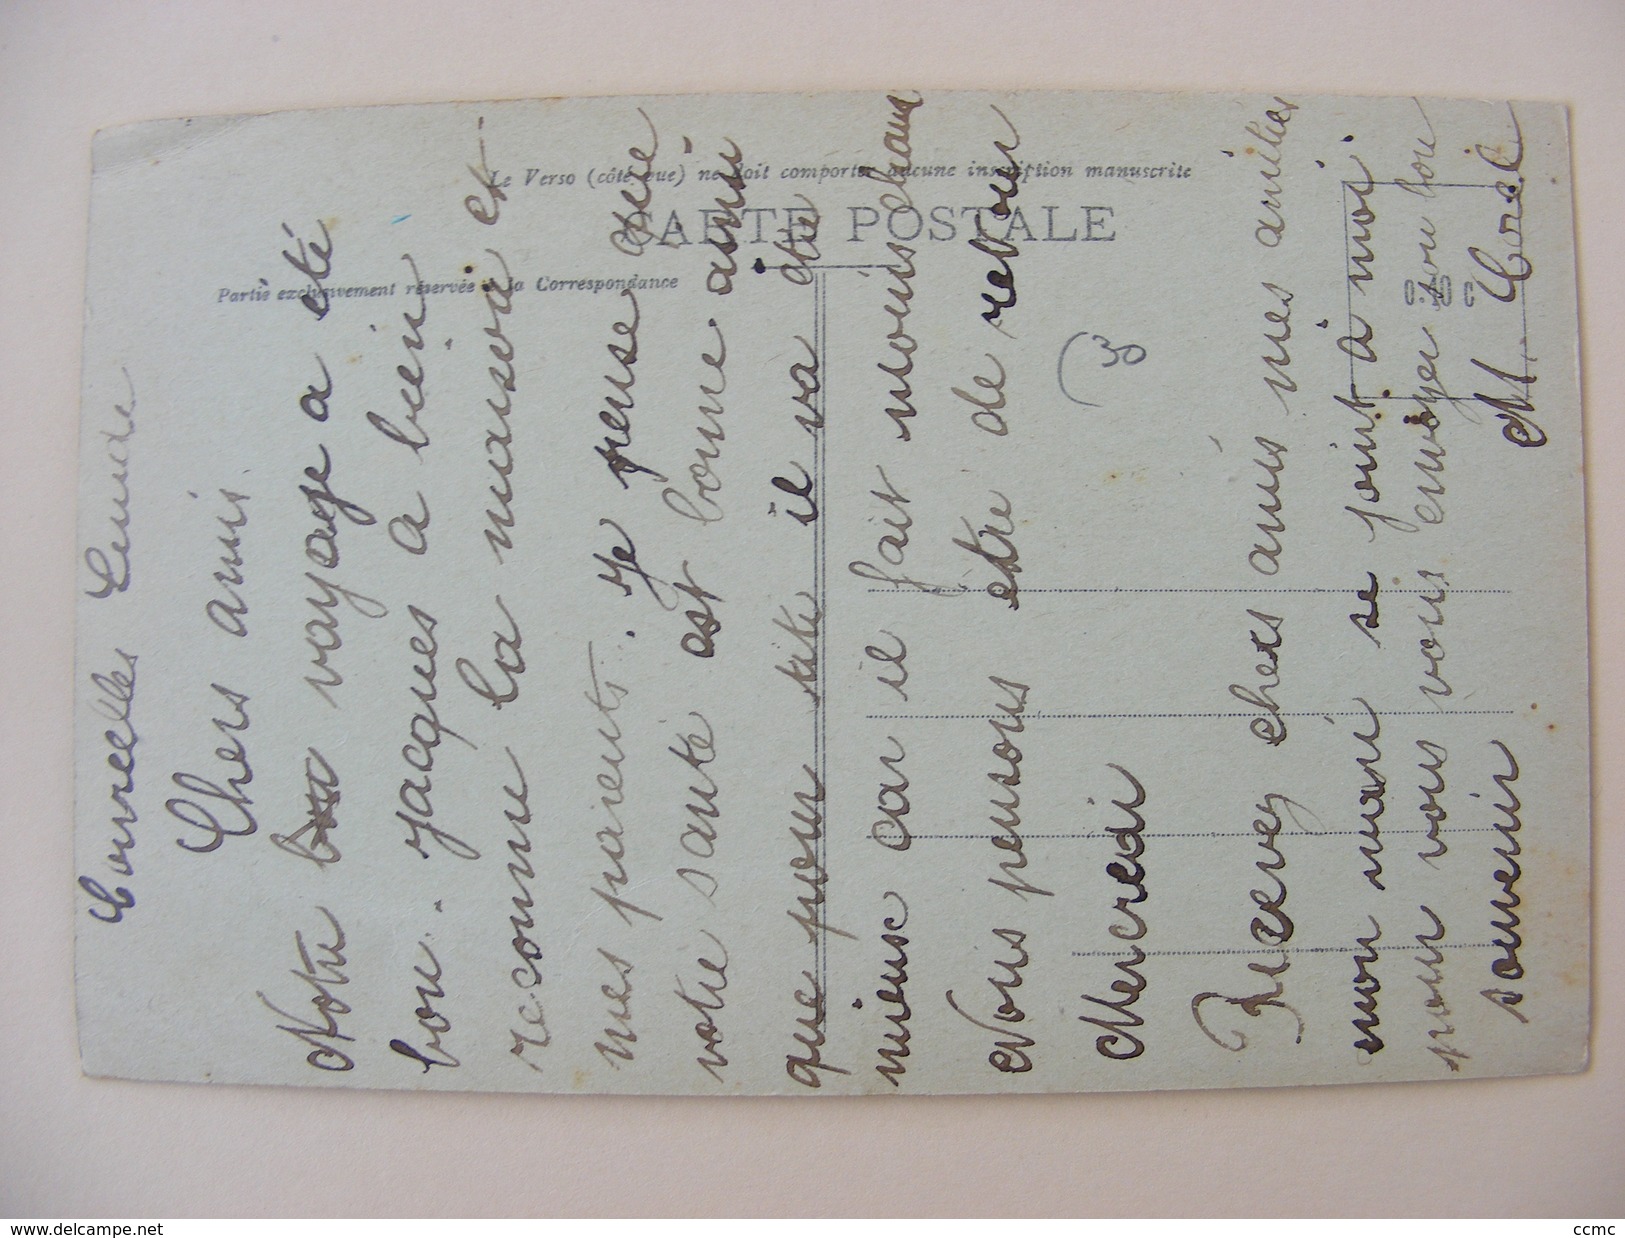 Le Verso (côté vue) ne doit comporter aucune inscription manuscrite
CARTE POSTALE
Partie exclusivement réservée à la Correspondance
Courcelles Lundi
Chers amis
Notre voyage a été
bon. Jacques a bein
reconnu la maison et
mes parents. Je pense que
votre santé est bonne ainsi
que pour tité il va être
mieux car il fait moins chaud
Nous pensons être de retour
Mercredi
Recevez chers amis mes amitiés
mon mari se joint à moi
pour vous vous envoyer son bon
souvenir
M Corel
(3
www.delcampe.net
ccmc